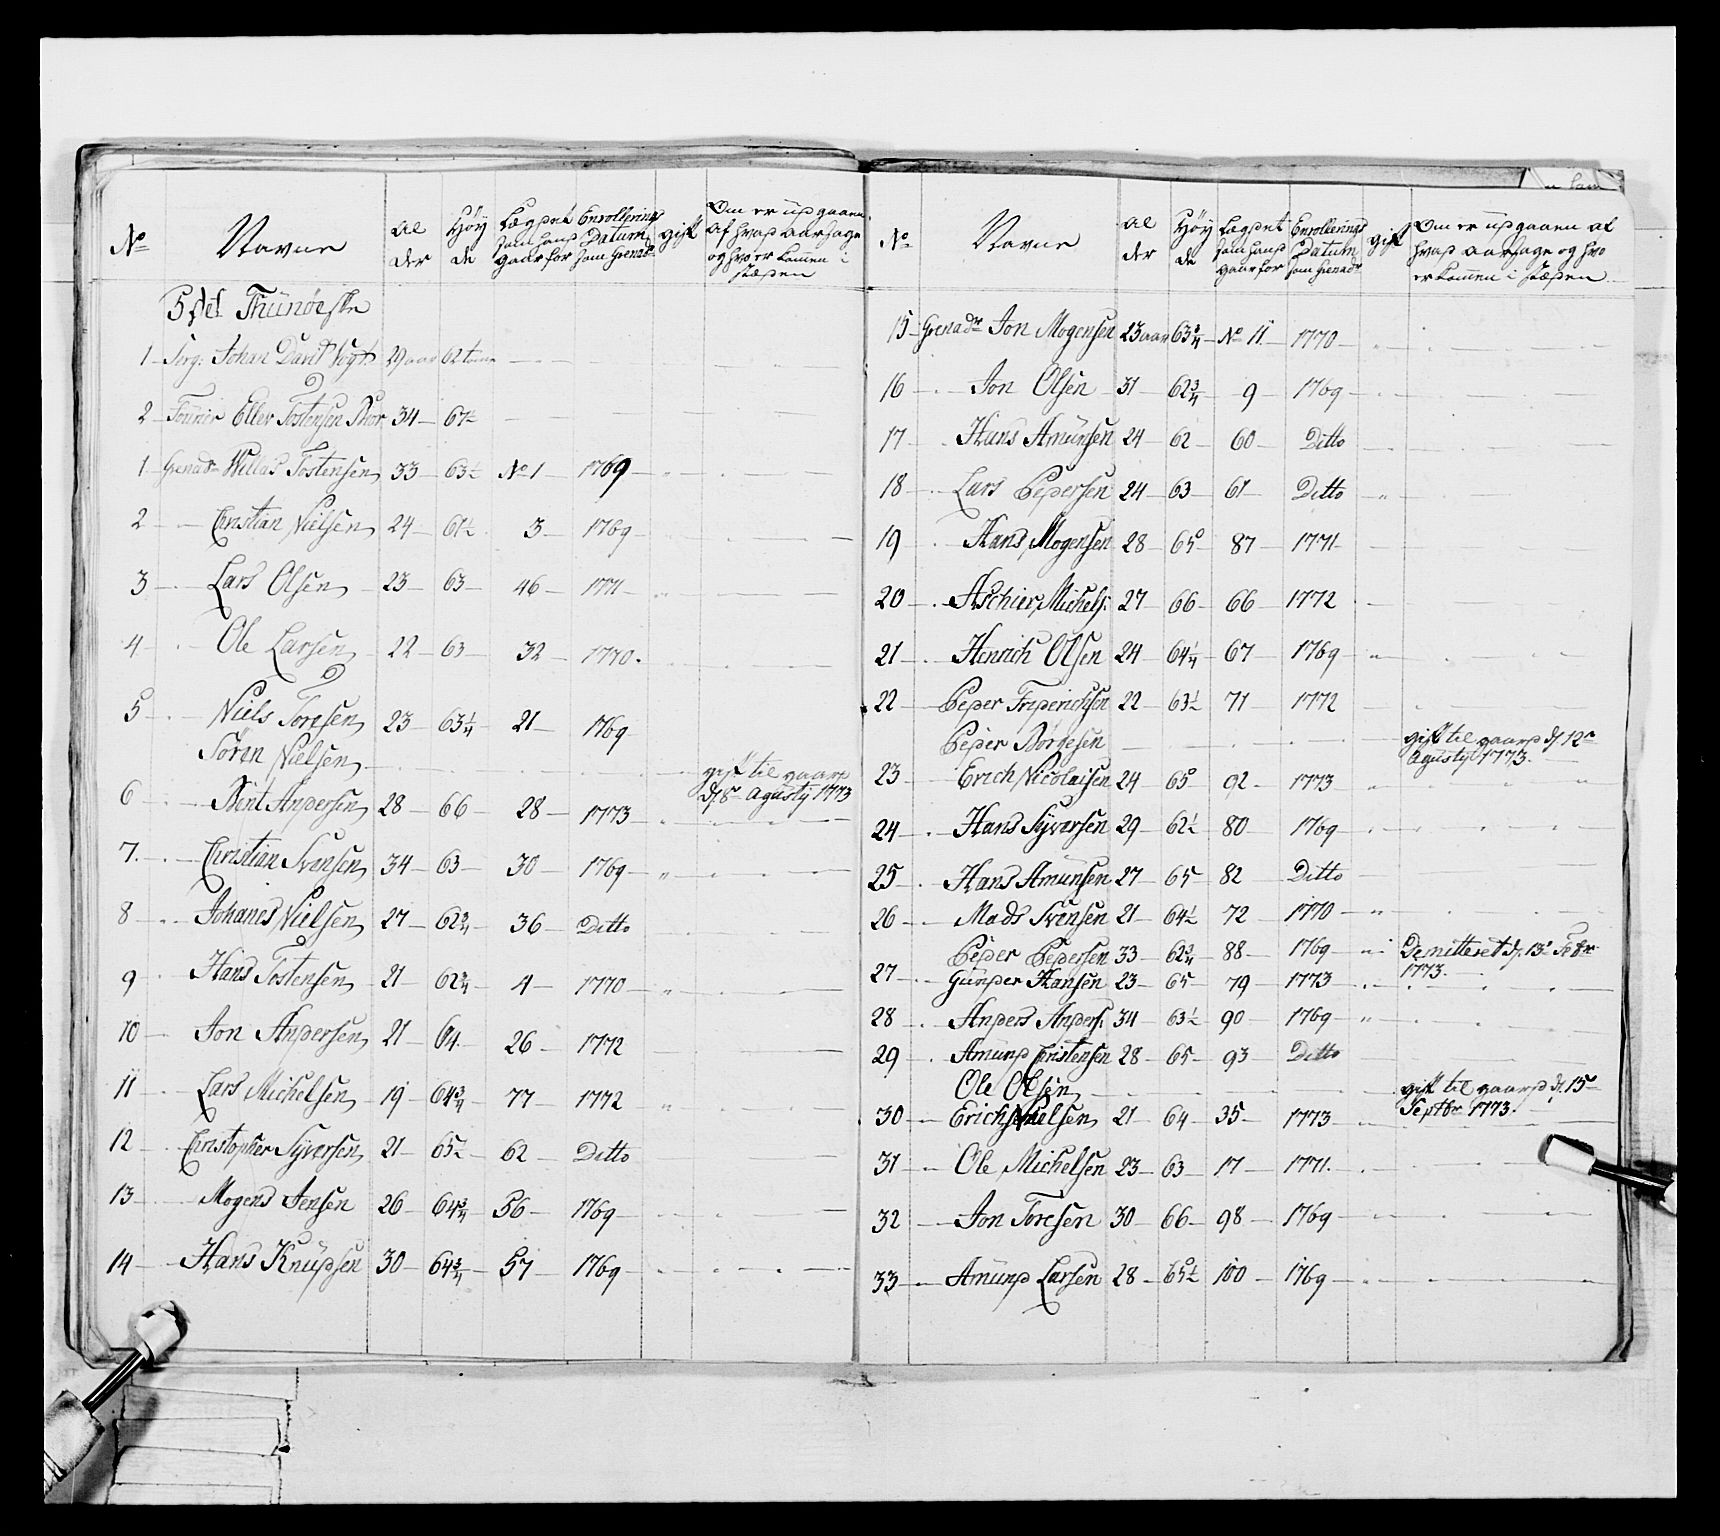 No Navne Al der Høy de Lægdet som hand gaar for Enrollerings Datum som Grenadr gift Om er udgaaen af hvad Aarsage og hvo er kommen i stæden
5te Thunøeske
1 Serg: Johan David Vogt 29 aar 62 tome
2 Fourier Eller Tostensen 34 67
1 Grenadr Tostensen 33 63½ No 1 1769
2 Christian Nielsen 24 61½ 3 1769
3 Lars Olsen 23 63 46 1771
4 Ole Larsen 22 63 32 1770
5 Niels Toresen 23 63¼ 21 1769
Søren Nielsen gift til gaard d: 8de Agusty 1773
6 Bent Andersen 28 66 28 1773
7 Christian Svensen 34 63 30 1769
8 Johanes Nielsen 27 62¾ 36 Ditto
9 Hans Tostensen 21 62¾ 4 1770
10 Jon Andersen 21 64 26 1772
11 Lars Michelsen 19 64¾ 77 1772
12 Christopher Syversen 21 65½ 62 Ditto
13 Mogens Jensen 26 64¾ 56 1769
14 Hans Knudsen 30 64¾ 57 1769
No Navne Al der Høy de Lægdet som hand gaar for Enrollerings Datum som Grenadr gift Om er udgaaen af hvad Aarsage og hvo er kommen i stæden
15 Grenadr Jon Mogensen 23 aar 63¾ No 11 1770
16 Jon Olsen 31 62¾ 9 1769
17 Hans Amunsen 24 62 60 Ditto
18 Lars Pedersen 24 63 61 Ditto
19 Hans Mogensen 28 65 87 1771
20 Aschier Michels: 27 66 66 1772
21 Henrich Olsen 24 64¼ 67 1769
22 Peder Friderichsen 22 63½ 71 1772
Peder Børgesen gift til gaard d: 12te Agusty 1773
23 Erich Nicolaisen 24 65 92 1773
24 Hans Syversen 29 62½ 80 1769
25 Hans Amunsen 27 65 82 Ditto
26 Mads Svensen 21 64½ 72 1770
Peder Pedersen 33 62¾ 88 1769 Demitteret d: 13de Febr 1773
27 Gunder Hansen 23 65 79 1773
28 Anders Anders: 34 63½ 90 1769
29 Amund Christensen 28 65 93 Ditto
Ole Olsen gift til gaard d: 15de Septbr 1773
30 Erich Nielsen 21 64 35 1773
31 Ole Michelsen 23 63 17 1771
32 Jon Toresen 30 66 98 1769
33 Amund Larsen 28 65½ 100 1769